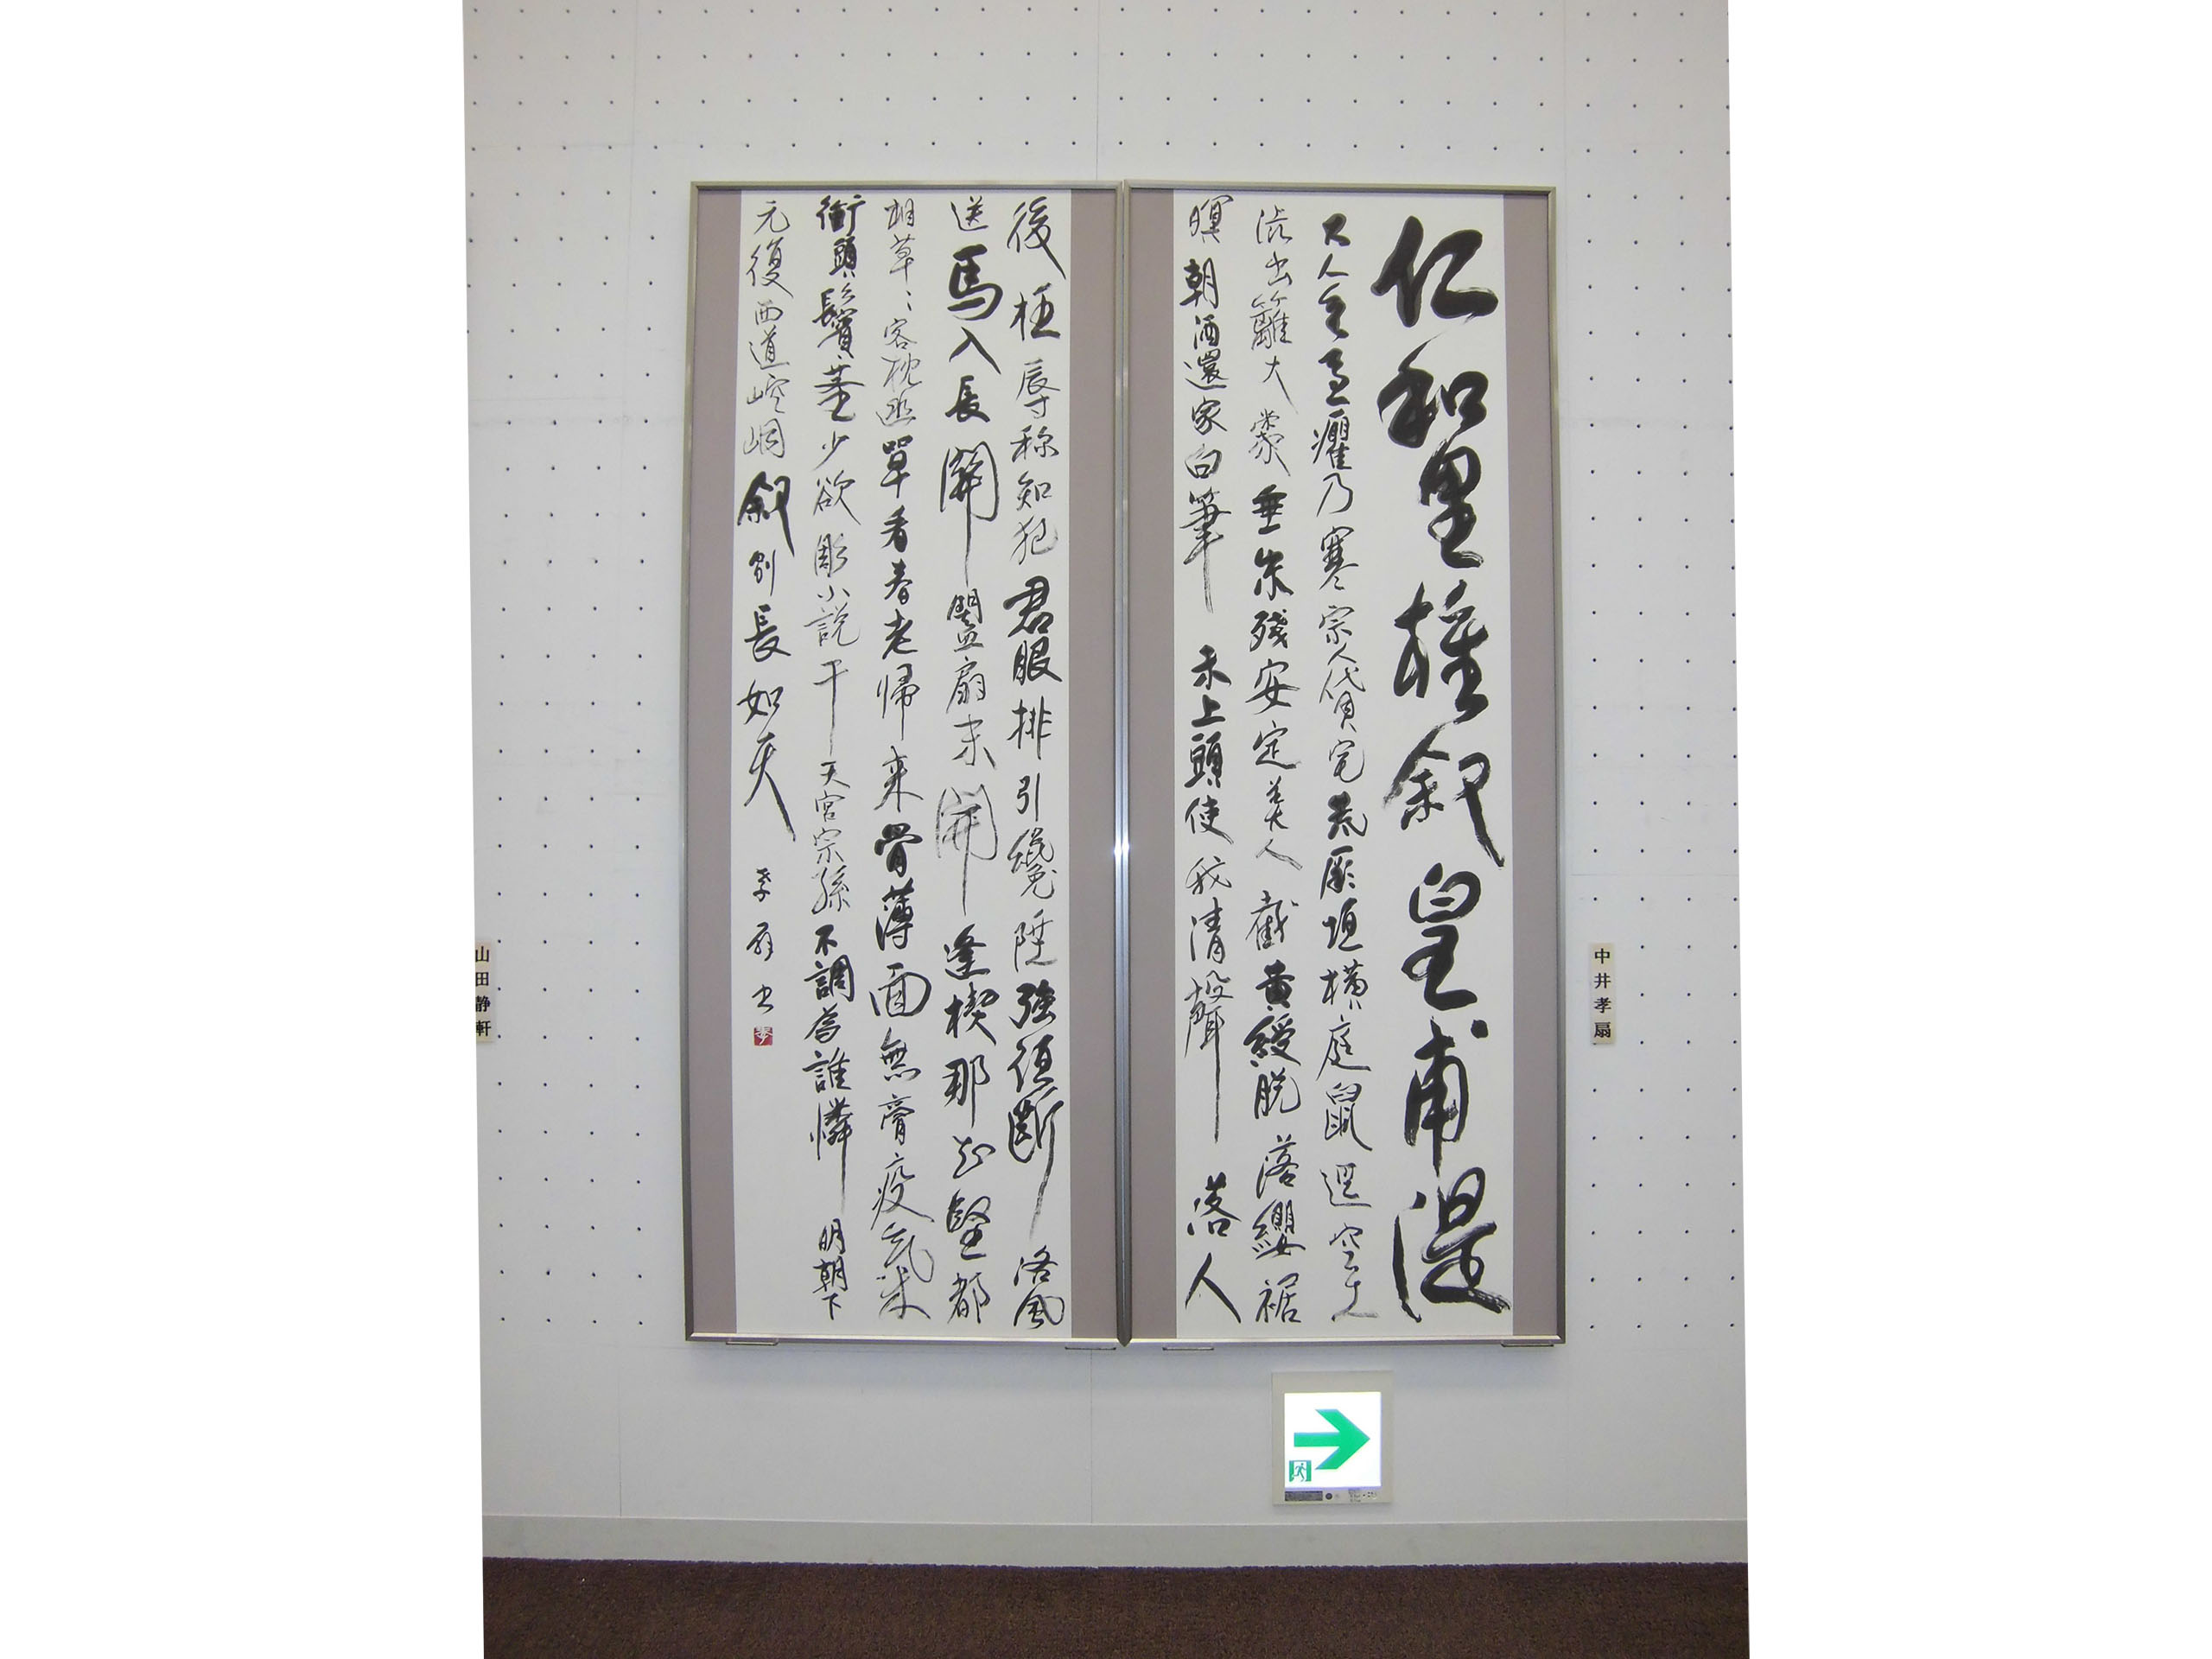 仁和里雑叙皇甫湜
大人乞馬癯乃寒宗人貸宅荒厥垣横庭鼠逕空土
澁出籬大棗垂朱残安定美人截黄綬脱落纓裾
暝朝酒還家白筆未上頭使我清聲落人
後枉辱称知犯君眼排引纔陞強絙断洛風
送馬入長關闔扇未開逢楔那知堅都
相草〻客枕幽單看春老帰来骨薄面無膏疫気来
衝頭鬢莖少欲彫小説干天官宗孫不調為誰憐明朝下
元復西道崆峒叙別長如天
孝扇書
中井孝扇
山田静軒